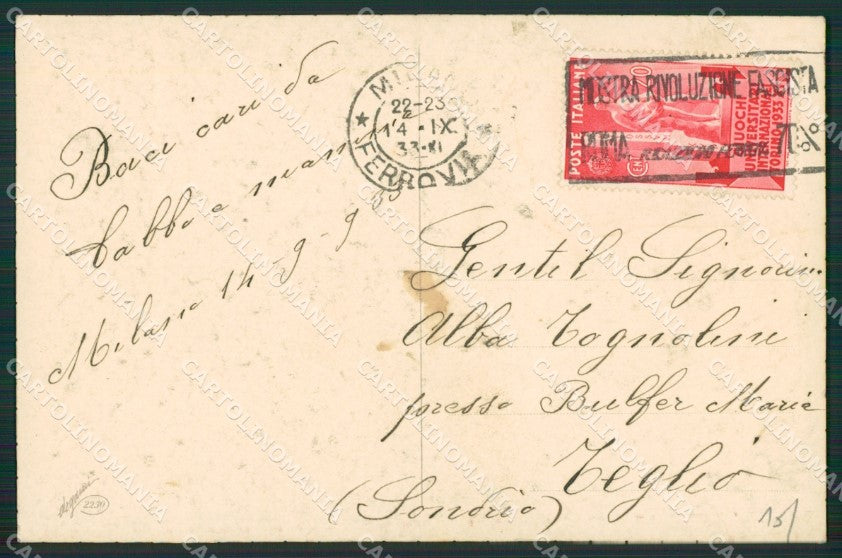 Baci cari da
babbo e mamma
Milano 14-9-933
MILANO
22-23
14·IX
33·XI
FERROVIA
POSTE ITALIANE
MOSTRA RIVOLUZIONE FASCISTA
ROMA
GIUOCHI
UNIVERSITARI
INTERNAZIONALI
TORINO 1933
Gentil Signorina
Alba Tognolini
presso Bulfer Maria
Teglio
(Sondrio)
degami
2230
15/
CARTOLINOMANIA